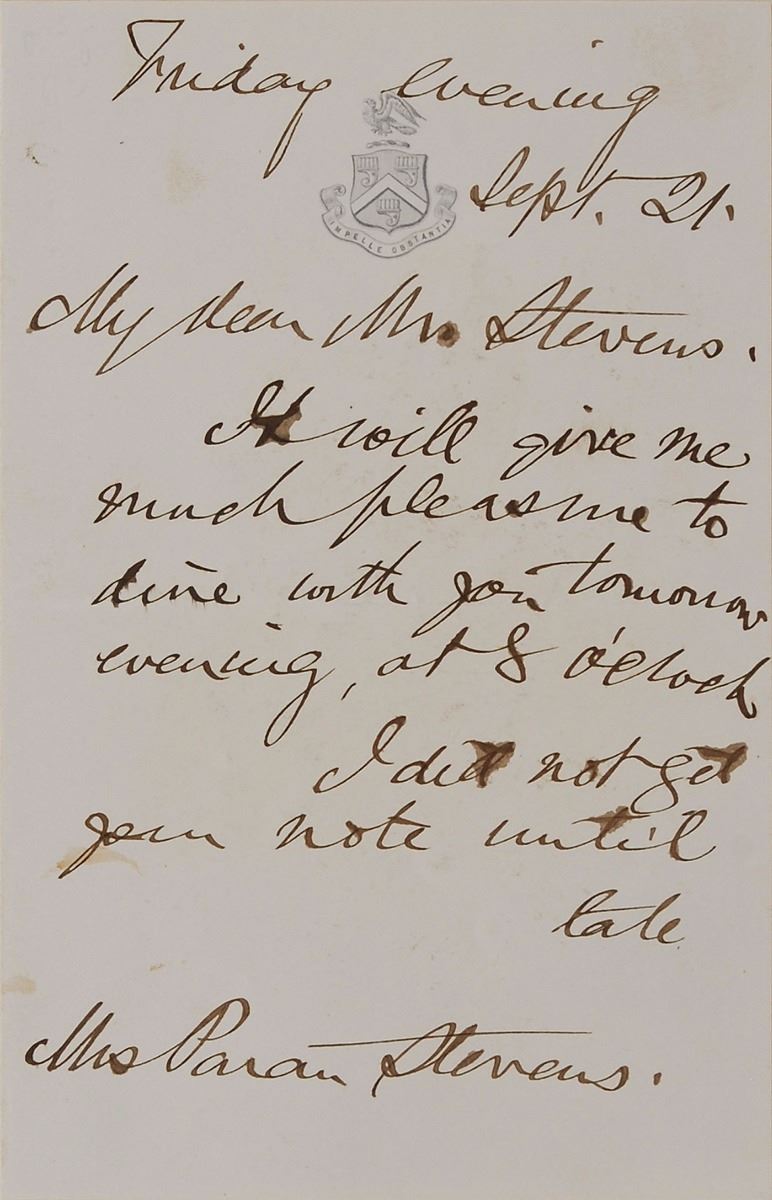 Friday evening
IMPELLE OBSTANTIA
Sept. 21.
My dear Mrs. Stevens.
It will give me
much pleasure to
dine with you tomorrow
evening, at 8 o'clock
I did not get
your note until
late
Mrs Paran Stevens.